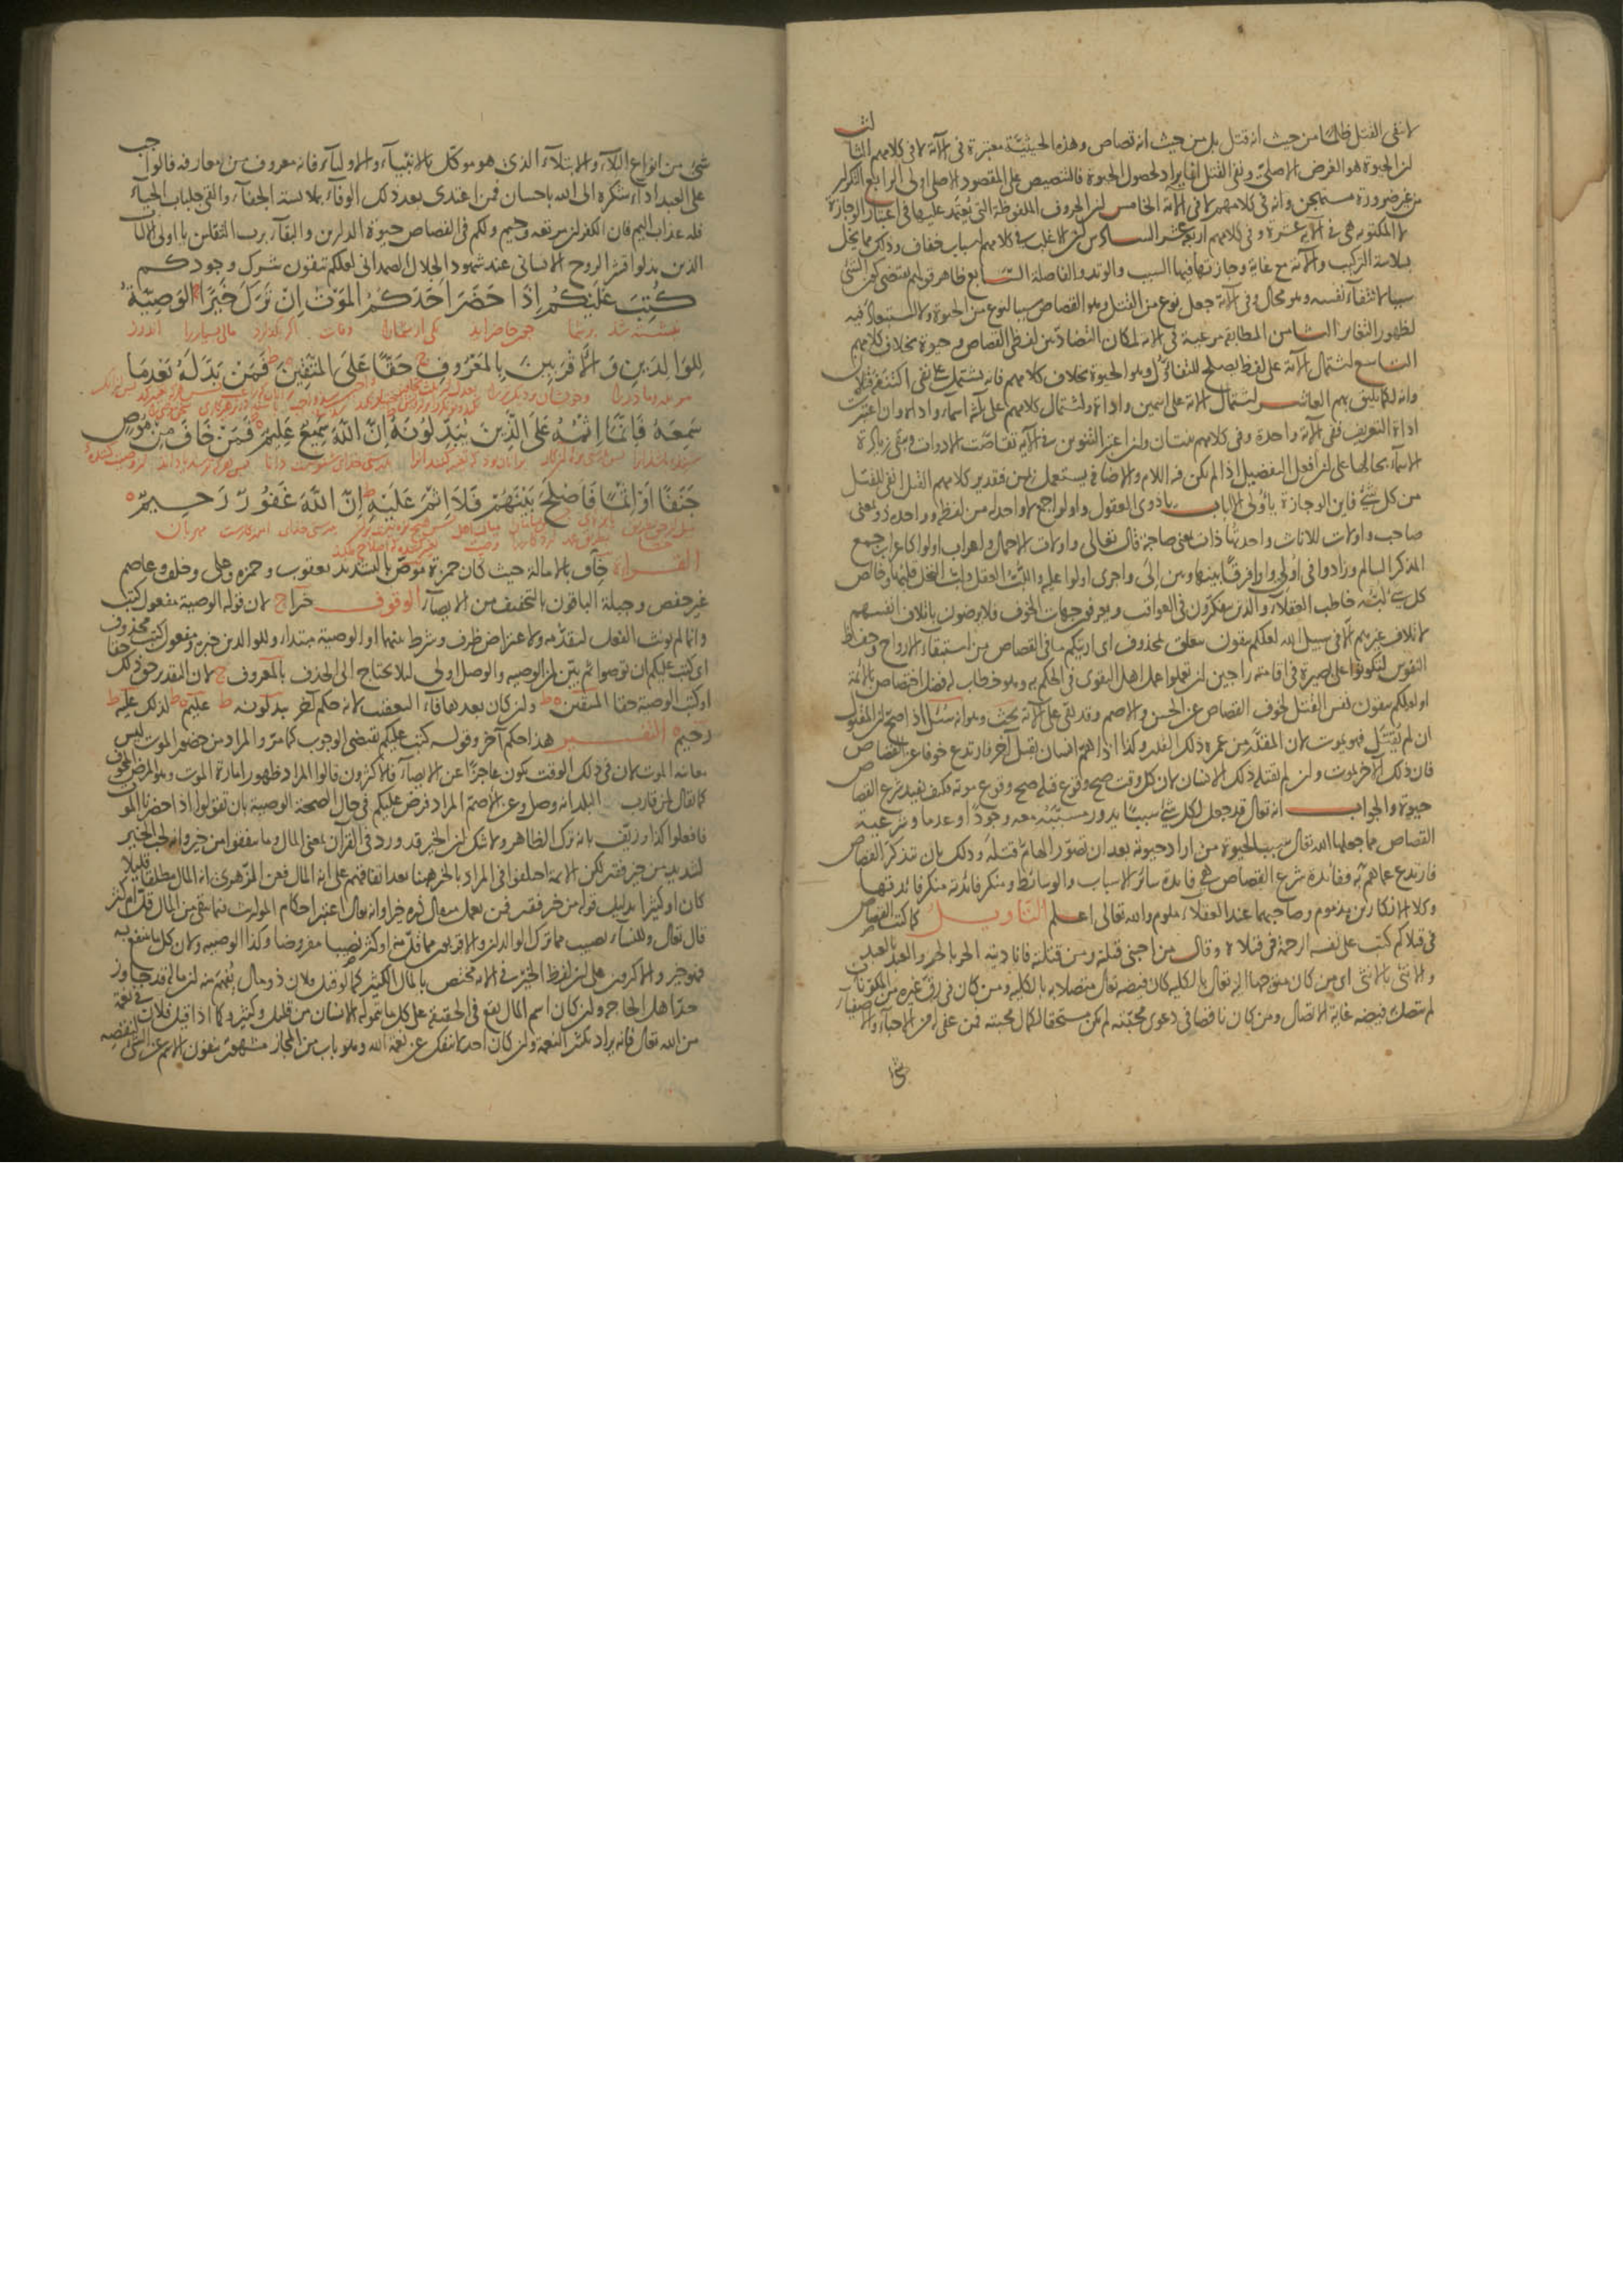 لا ينفي القتل ظلما من حيث انه قتل بل من حيث انه قصاص وهذه الحيثية معتبرة في الآية لا في كلامهم الثالث
لن الحيوة هو الغرض الاصلي ونفي القتل انما يراد لحصول الحيوة فالتنصيص على المقصود الاصلي اولى الرابع التكرار
من غير ضرورة مستهجن وانه في كلامهم لا في الآية الخامس لن الحروف الملفوظة التي يعتمد عليها في اعتبار الوجازة
لا المكتوبة هي في الآية عشرة وفي كلامهم اربعة عشر السادس لن الاغلب في كلامهم اسباب خفاف وذلك مما يخل
بسلاسة التركيب والآية مع غاية وجازتها فيها السبب والوتد والفاصلة السابع ظاهر قولهم يقتضي كون الشئ
سببا لانتفاء نفسه وهو محال وفي الآية جعل نوع من القتل وهو القصاص سببا لنوع من الحيوة ولا استبعاد فيه
لظهور التغاير الثامن المطابقة مرعية في الآية لمكان التضاد بين لفظي القصاص وحيوة بخلاف كلامهم
التاسع اشتمال الآية على لفظ يصلح للتفاؤل وهو الحيوة بخلاف كلامهم فانه يشتمل على نفي اكتنفه قتلان
وانه لكما يليق بهم العاشر اشتمال الآية على اسمين واداة واشتمال كلامهم على ثلثة اسماء واداة وان اعتبرت
اداة التعريف ففي الآية واحدة وفي كلامهم ثنتان ولن اعتبر التنوين في الآية تقاصت الادوات فيبقى زيادة
الاسماء بحالها على لن افعل التفضيل اذا لم يكن فيه اللام والاضافة يستعمل بمن فتقدير كلامهم القتل انفى للقتل
من كل شئ فاين الوجازة يا اولى الالباب يا ذوي العقول واولوا جمع لا واحد له من لفظه وواحده ذو بمعنى
صاحب واولات للاناث واحدتها ذات بمعنى صاحبة قال تعالى واولات الاحمال واعراب اولوا كاعراب جمع
المذكر السالم وزادوا في اولى واوا فرقا بينها وبين الى واجرى اولوا عليه واللب العقل ولب النخل قلبها وخالص
كل شئ لبه خاطب العقلاء والذين يتفكرون في العواقب ويعرفون جهات الخوف فلا يرضون باتلاف انفسهم
لاتلاف غيرهم الا في سبيل الله لعلكم تتقون متعلق بمحذوف اي اريتكم ما في القصاص من استبقاء الارواح وحفظ
النفوس لتكونوا على بصيرة في اقامته راجين لن تعملوا عمل اهل التقوى في الحكم به وهو خطاب له فضل اختصاص بالائمة
او لعلكم تتقون نفس القتل لخوف القصاص عن الحسن والاصم وقد بقي على الآية بحث وهو انه سئل اذا صح لن المقتول
ان لم يقتل فهو يموت لان المقدر من عمره ذلك القدر وكذا اذا هم انسان بقتل آخر فارتدع خوفا عن القصاص
فان ذلك الآخر يموت ولن لم يقتله ذلك الانسان لان كل وقت صح وقوع قتله صح وقوع موته فكيف يفيد شرع القصاص
حيوة والجواب انه تعالى قد جعل لكل شئ سببا يدور مسببه معه وجودا وعدما وشرعية
القصاص مما جعلها الله تعالى سببا لحيوة من اراد حيوته بعد ان تصور الهام قتله وذلك بان تذكر القصاص
فارتدع عما هم به ففائدة شرع القصاص هي فائدة سائر الاسباب والوسائط ومنكر فائدته منكر فائدتها
وكلا الانكارين مذموم وصاحبهما عند العقلاء ملوم والله تعالى اعلم التاويل كما كتب القصاص
في قتلاكم كتب على نفسه الرحمة في قتلاه وقال من احبني قتلته ومن قتلته فانا ديته الحر بالحر والعبد بالعبد
والانثى بالانثى اي من كان متوجها اليه تعالى بالكلية كان فيضه تعالى متصلا به بالكلية ومن كان في رق غيره من المكونات
لم تتصل فيضه غاية الاتصال ومن كان ناقصا في دعوى محبته لم يكن مستحقا لكمال محبته فمن عفي له من الاحباء والاصفياء
شئ
شئ من انواع البلاء والابتلاء الذي هو موكل بالانبياء والاولياء فانه معروف من معارفه فالواجب
على العبد اداء شكره الى الله باحسان فمن اعتدى بعد ذلك الوفاء بملابسة الجفاء والقى جلباب الحياء
فله عذاب اليم فان الكفر لن مرتعه وخيم ولكم في القصاص حيوة الدارين والبقاء برب الثقلين يا اولى الالباب
الذين بذلوا قشر الروح الانساني عند شهود الجلال الصمداني لعلكم تتقون شرك وجودكم
كُتِبَ عَلَيْكُمْ اِذَا حَضَرَ اَحَدَكُمُ الْمَوْتُ اِنْ تَرَكَ خَيْرًا الْوَصِيَّةُ
لِلْوَالِدَيْنِ وَالْاَقْرَبِينَ بِالْمَعْرُوفِ ج حَقًّا عَلَى الْمُتَّقِينَ ط فَمَنْ بَدَّلَهُ بَعْدَمَا
سَمِعَهُ فَاِنَّمَا اِثْمُهُ عَلَى الَّذِينَ يُبَدِّلُونَهُ اِنَّ اللّٰهَ سَمِيعٌ عَلِيمٌ فَمَنْ خَافَ مِنْ مُوصٍ
جَنَفًا اَوْ اِثْمًا فَاَصْلَحَ بَيْنَهُمْ فَلَا اِثْمَ عَلَيْهِ ط اِنَّ اللّٰهَ غَفُورٌ رَحِيمٌ
القراءة خاف بالامالة حيث كان حمزة موص بالتشديد يعقوب وحمزه وعلى وخلف وعاصم
غير حفص وجبلة الباقون بالتخفيف من الايصاء الوقوف خيرا ج لان قوله الوصية مفعول كتب
وانما لم يونث الفعل لتقدمه ولاعتراض ظرف وشرط بينهما او الوصية مبتداء وللوالدين خبره ومفعول كتب محذوف
اي كتب عليكم ان توصوا ثم بين لمن الوصيه والوصل اولى لئلا يحتاج الى الحذف بالمعروف ج لان التقدير حق ذلك حقا
او كتب الوصية حقا المتقين ط ولن كان بعدها فاء التعقيب لانه حكم آخر يبدلونه ط عليم ط لذلك عليه ط
رحيم التفسير هذا حكم آخر وقوله كتب عليكم يقتضي الوجوب كما مر والمراد من حضور الموت ليس
معاينة الموت لان في ذلك الوقت يكون عاجزا عن الايصاء فالاكثرون قالوا المراد ظهور امارة الموت وهو المرض المخوف
كما يقال لمن قارب البلد انه وصل وعن الاصم المراد فرض عليكم في حال الصحة الوصية بان تقولوا اذا حضرنا الموت
فافعلوا كذا وزيف بانه ترك الظاهر ولا شك لن الخير قد ورد في القرآن بمعنى المال وما تنفقوا من خير وانه لحب الخير
لشديد من خير فقير لكن الائمة اختلفوا في المراد بالخير ههنا بعد اتفاقهم على انه المال فعن الزهري انه المال مطلقا قليلا
كان او كثيرا بدليل قوله من خير فقير فمن يعمل مثقال ذره خيرا وانه تعالى اعتبر احكام المواريث فيما يبقى من المال قل ام كثر
قال تعالى وللنساء نصيب مما ترك الوالدان والاقربون مما قل منه او كثر نصيبا مفروضا وكذا الوصيه ولان كل ما ينتفع به
فهو خير والاكثرون على لن لفظ الخير في الآية مختص بالمال الكثير كما لو قيل فلان ذو مال يفهم منه لن ماله قد جاوز
حد اهل الحاجه ولن كان اسم المال يقع في الحقيقة على كل ما يتموله الانسان من قليل وكثير وكما اذا قيل فلان في نعمة
من الله تعالى فانه يراد تكثر النعمة ولن كان احد لا ينفك عن نعمة الله وهو باب من المجاز مشهور ينفون الاسم عن الشئ لنقصه